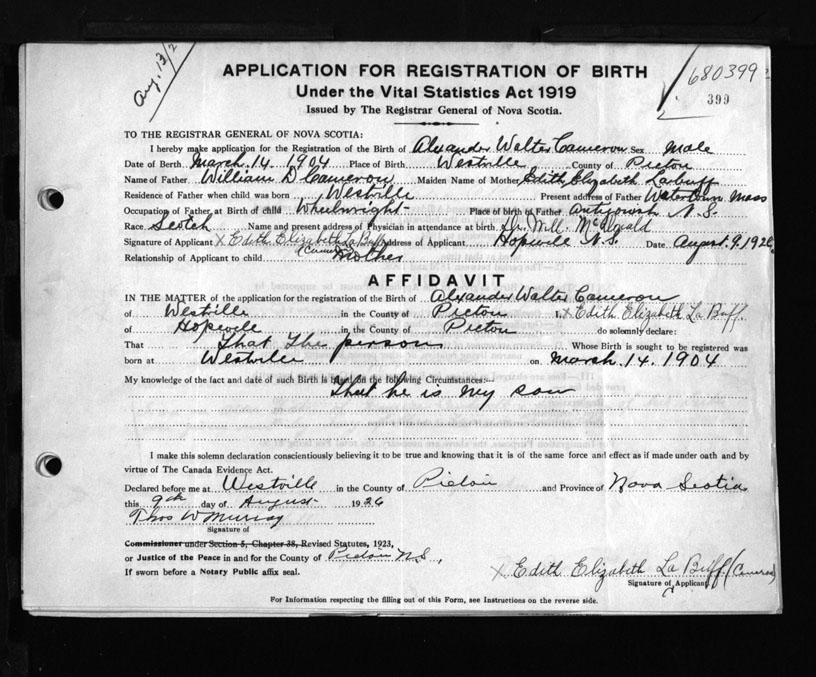 Aug. 13/2
680399
399
APPLICATION FOR REGISTRATION OF BIRTH
Under the Vital Statistics Act 1919
Issued by The Registrar General of Nova Scotia.
TO THE REGISTRAR GENERAL OF NOVA SCOTIA:
I hereby make application for the Registration of the Birth of Alexander Walter Cameron Sex Male
Date of Birth March. 14. 1904 Place of Birth Westville County of Pictou
Name of Father William D Cameron Maiden Name of Mother Edith Elizabeth Labuff
Residence of Father when child was born Westville Present address of Father Watertown Mass
Occupation of Father at Birth of child Wheelwright Place of birth of Father Antigonish N.S.
Race Scotch Name and present address of Physician in attendance at birth Dr. Will. McDonald
Signature of Applicant X Edith Elizabeth La Buff (Cameron) Address of Applicant Hopeville N.S. Date August. 9. 1926
Relationship of Applicant to child Mother
AFFIDAVIT
IN THE MATTER of the application for the registration of the Birth of Alexander Walter Cameron
of Westville in the County of Pictou I, X Edith Elizabeth La Buff.
of Hopeville in the County of Pictou do solemnly declare:
That That The person Whose Birth is sought to be registered was
born at Westville on March. 14. 1904
My knowledge of the fact and date of such Birth is based on the following Circumstances:—
That he is my son
I make this solemn declaration conscientiously believing it to be true and knowing that it is of the same force and effect as if made under oath and by
virtue of The Canada Evidence Act.
Declared before me at Westville in the County of Pictou and Province of Nova Scotia
this 9th day of August 1926
Thos W Murray
Signature of
Commissioner under Section 5, Chapter 38, Revised Statutes, 1923,
or Justice of the Peace in and for the County of Pictou N.S,
If sworn before a Notary Public affix seal.
X Edith Elizabeth La Buff (Cameron)
Signature of Applicant
For Information respecting the filling out of this Form, see Instructions on the reverse side.